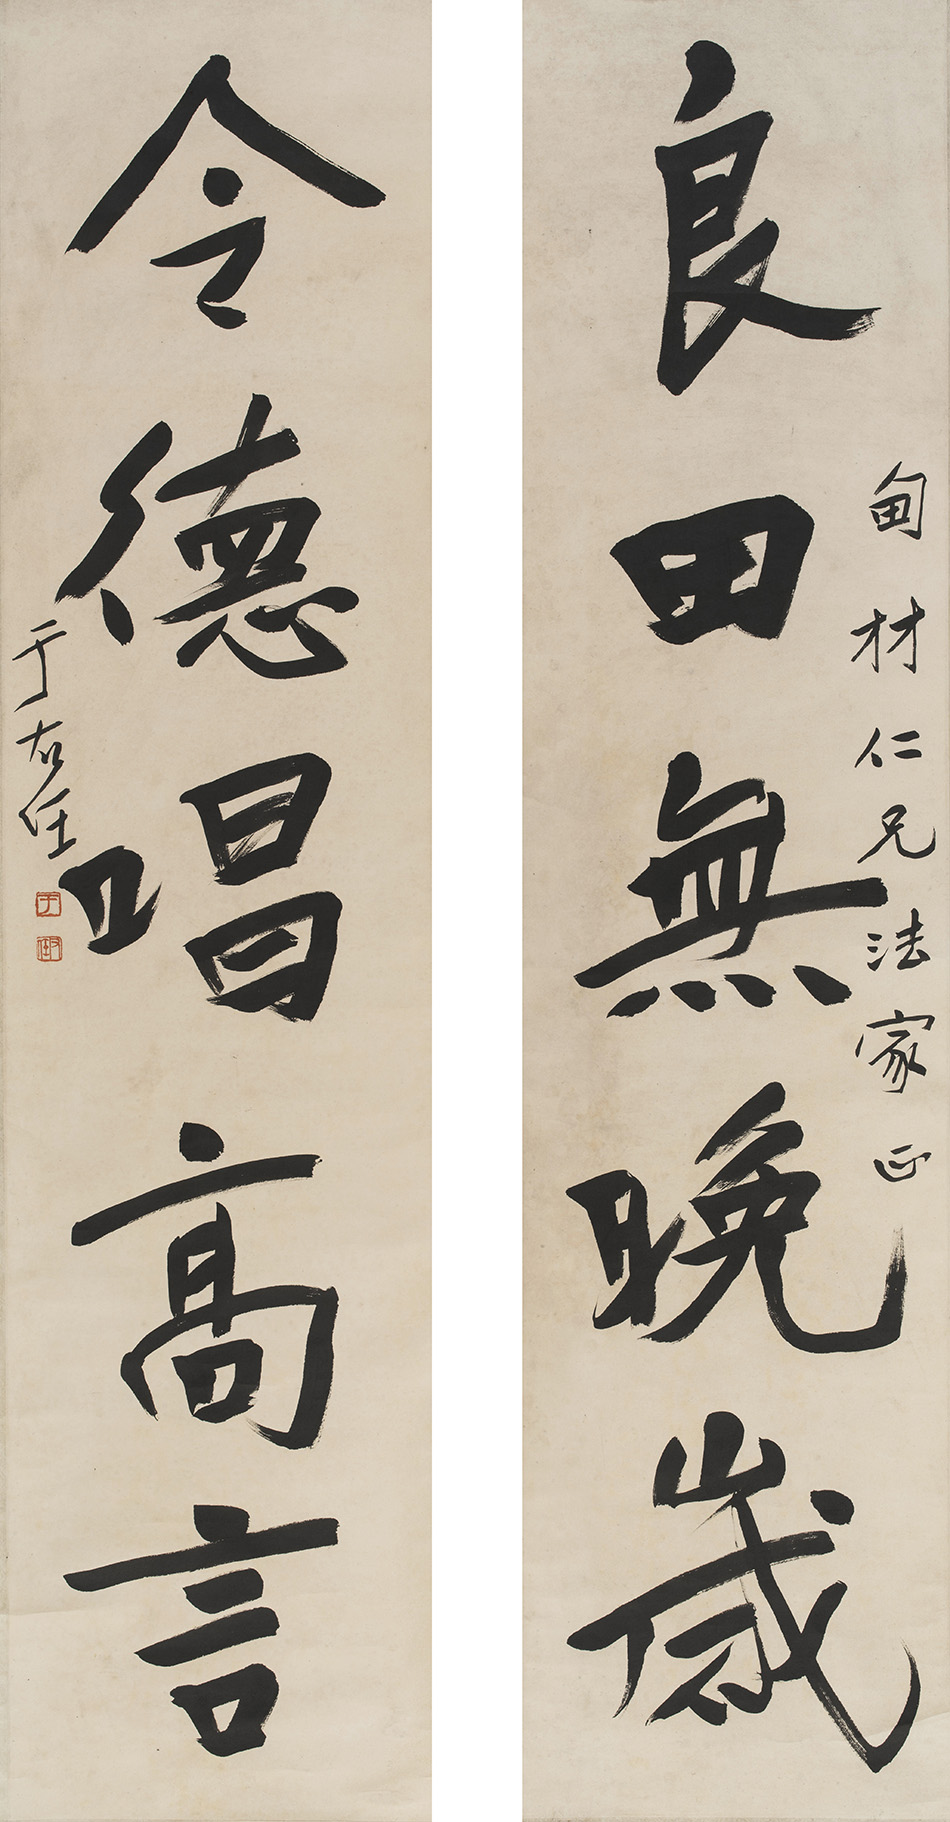 良田無晚歲
甸材仁兄法家正
令德唱高言
于右任